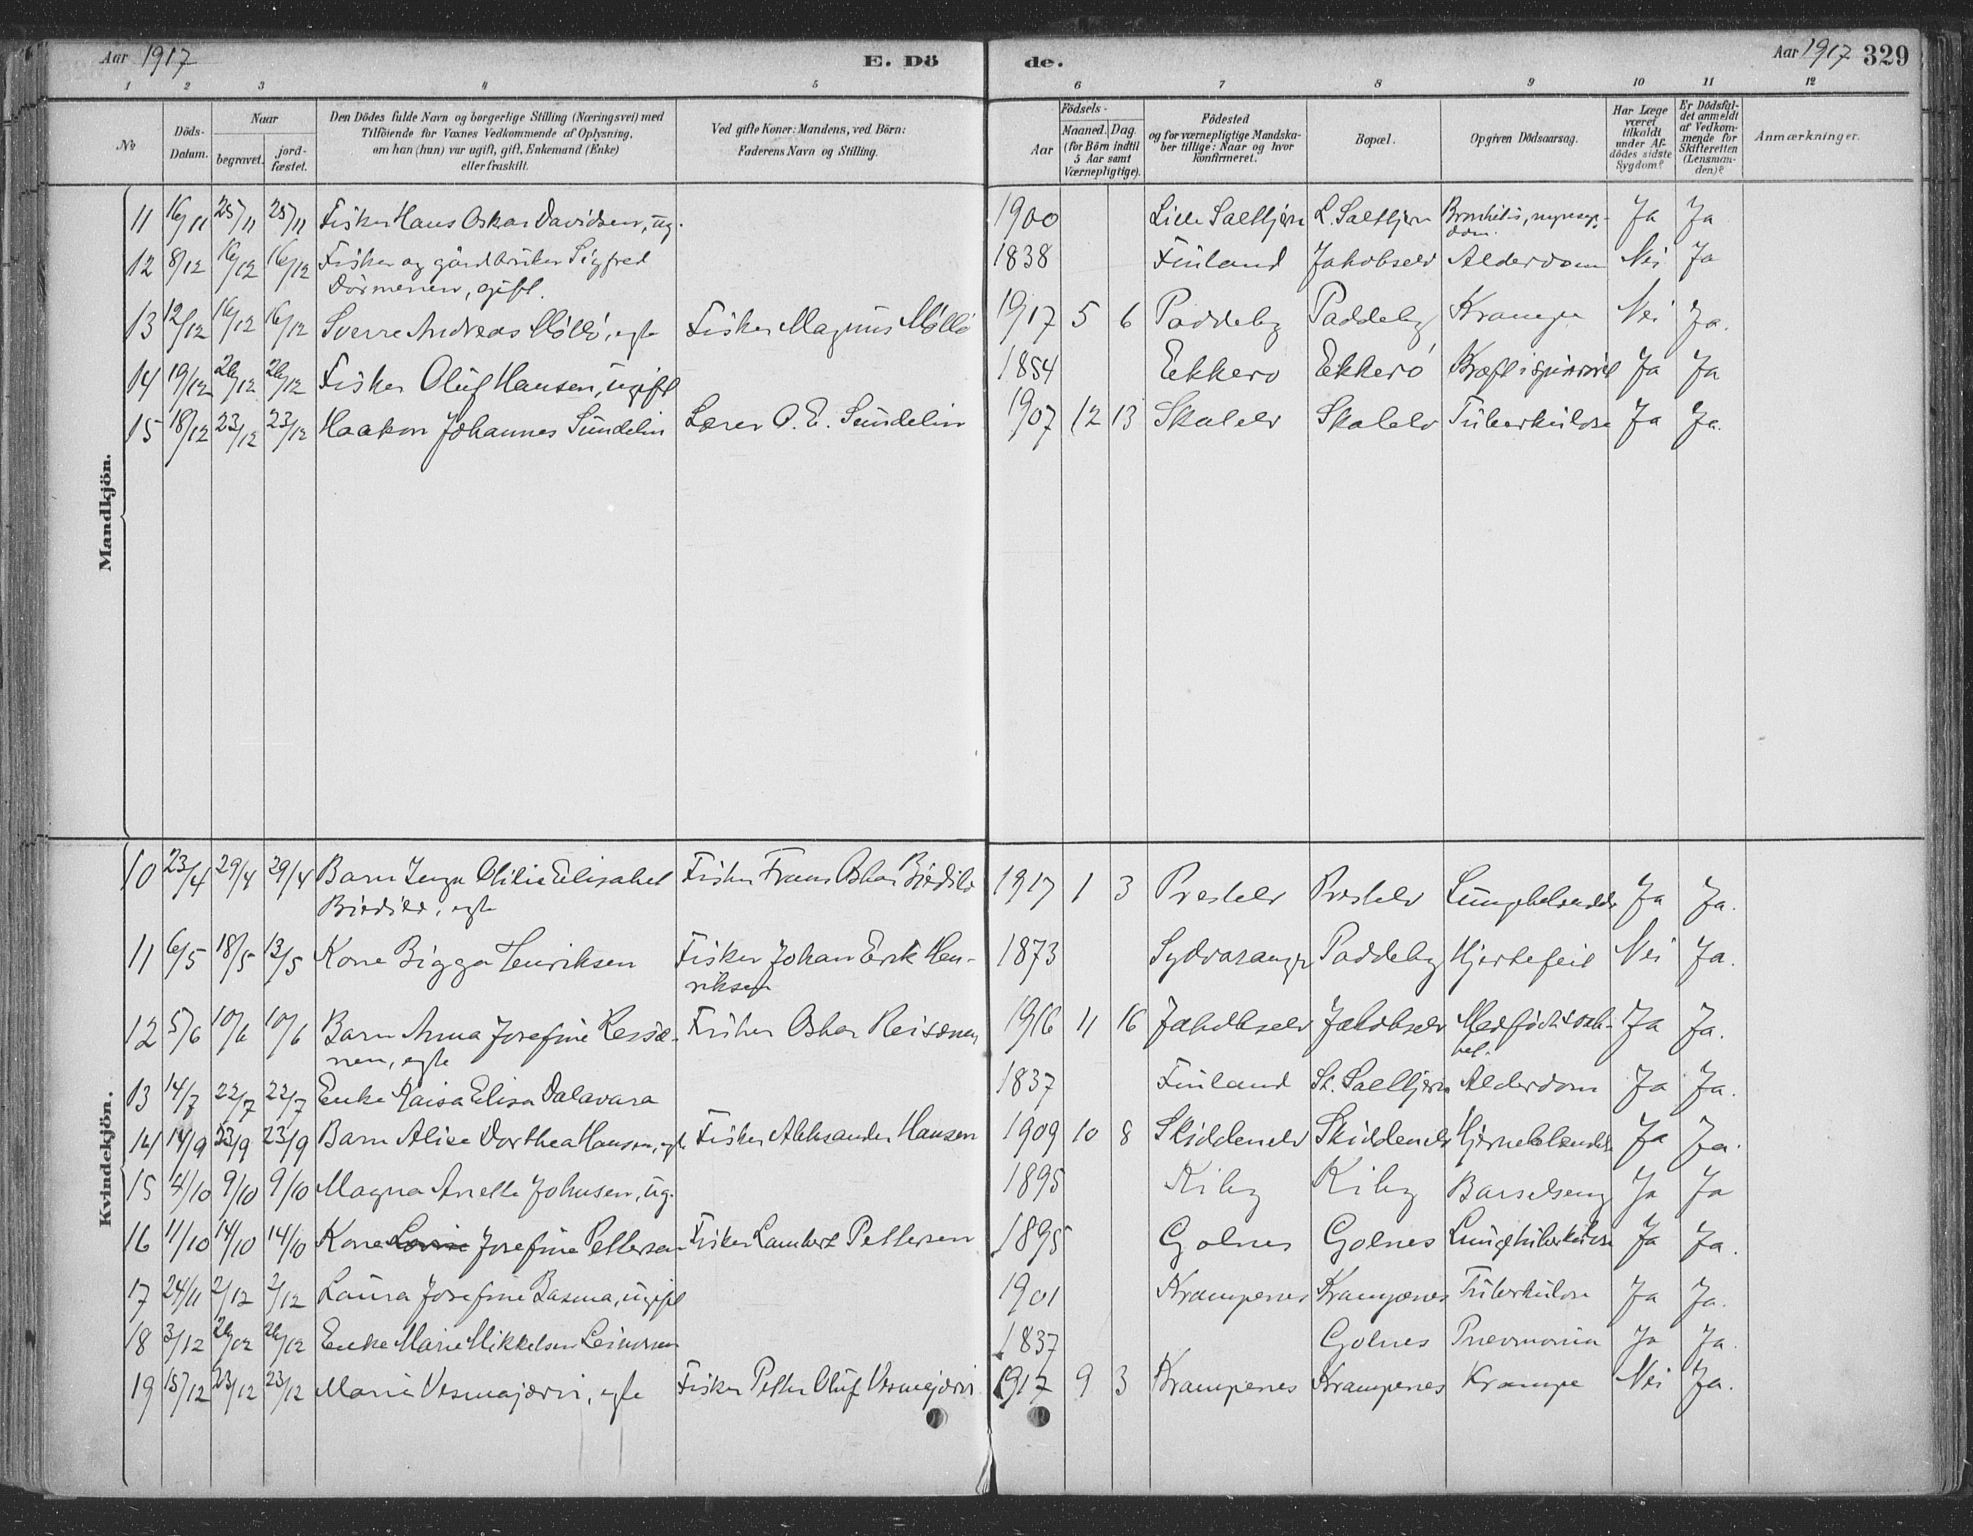 Aar 1917 E. Dö de. Aar 1917 329
1 2 3 4 5 6 7 8 9 10 11 12
No Döds-Datum. Naar begravet. jord-fæstet. Den Dödes fulde Navn og borgerlige Stilling (Næringsvei) med Tilföiende for Voxnes Vedkommende af Oplysning, om han (hun) var ugift, gift, Enkemand (Enke) eller fraskilt. Ved gifte Koner: Mandens, ved Börn: Faderens Navn og Stilling. Födsels- Aar Maaned. Dag. (for Börn indtil 5 Aar samt Værnepligtige). Födested og for værnepligtige Mandskaber tillige: Naar og hvor konfirmeret. Bopæl. Opgiven Dödsaarsag. Har Læge været tilkaldt under Afdödes sidste Sygdom? Er Dödsfaldet anmeldt af Vedkommende for Skifteretten (Lensmanden)? Anmærkninger.
Mandkjön.
11 16/11 25/11 25/11 Fisker Hans Oskar Davidsen, ug. 1900 Lille Saltfjern L. Saltfjern Bronkitis, nyresygdom. Ja Ja
12 8/12 16/12 16/12 Fisker og gårdbruker Sigfred 1838 Finland Jakobselv Alderdom Nei Ja
Dörmenen, gift.
13 12/12 16/12 16/12 Sverre Andreas Møllö, egte Fisker Magnus Møllö 1917 5 6 Paddeby Paddeby Krampe Nei Ja.
14 19/12 26/12 26/12 Fisker Oluf Hansen, ugift 1854 Ekkerö Ekkerö Kræft i spiserør Ja Ja
15 18/12 23/12 23/12 Haakon Johannes Sundelin Lærer O. E. Sundelin 1907 12 13 Skalelv Skalelv Tuberkulose Ja Ja.
Kvindekjön.
10 23/4 29/4 29/4 Barn Otilie Elisabet Fisker Frans Oskar 1917 1 3 Prestelv Prestelv Lungebetændelse Ja Ja.
egte
11 6/5 18/5 13/5 Kone Bigga Henriksen Fisker Johan Erik Hen- 1873 Sydvaranger Paddeby Hjertefeil Nei Ja.
riksen
12 5/6 10/6 10/6 Barn Anna Josefine Reisæ- Fisker Oskar Reisænen 1916 11 16 Jakobselv Jakobselv Medfødt svak- Ja Ja.
nen, egte het.
13 14/7 22/7 22/7 Enke Kaisa Elisa Dalavara 1837 Finland St. Saltfjern Alderdom Ja Ja.
14 14/9 23/9 23/9 Barn Alise Dorthea Hansen, egte Fisker Aleksander Hansen 1909 10 8 Skiddenelv Skiddenelv Hjernebetændelse Ja Ja.
15 4/10 9/10 9/10 Magna Anette Johnsen, ug. 1895 Kiby Kiby Barselseng Ja Ja
16 11/10 14/10 14/10 Kone Lovise Josefine Pettersen Fisker Lambert Pettersen 1895 Golnes Golnes Lungetuberkulose Ja Ja.
17 24/11 2/12 2/12 Laura Josefine Basma, ugift 1901 Krampenes Krampenes Tuberkulose Ja Ja.
18 3/12 26/12 26/12 Enke Marie Mikkelsen Leinonen 1837 Golnes Pnevmonia Ja Ja.
19 15/12 23/12 23/12 Maria Vesmajærvi, egte Fisker Petter Oluf Vesmajærvi 1917 9 3 Krampenes Krampenes Krampe Nei Ja.